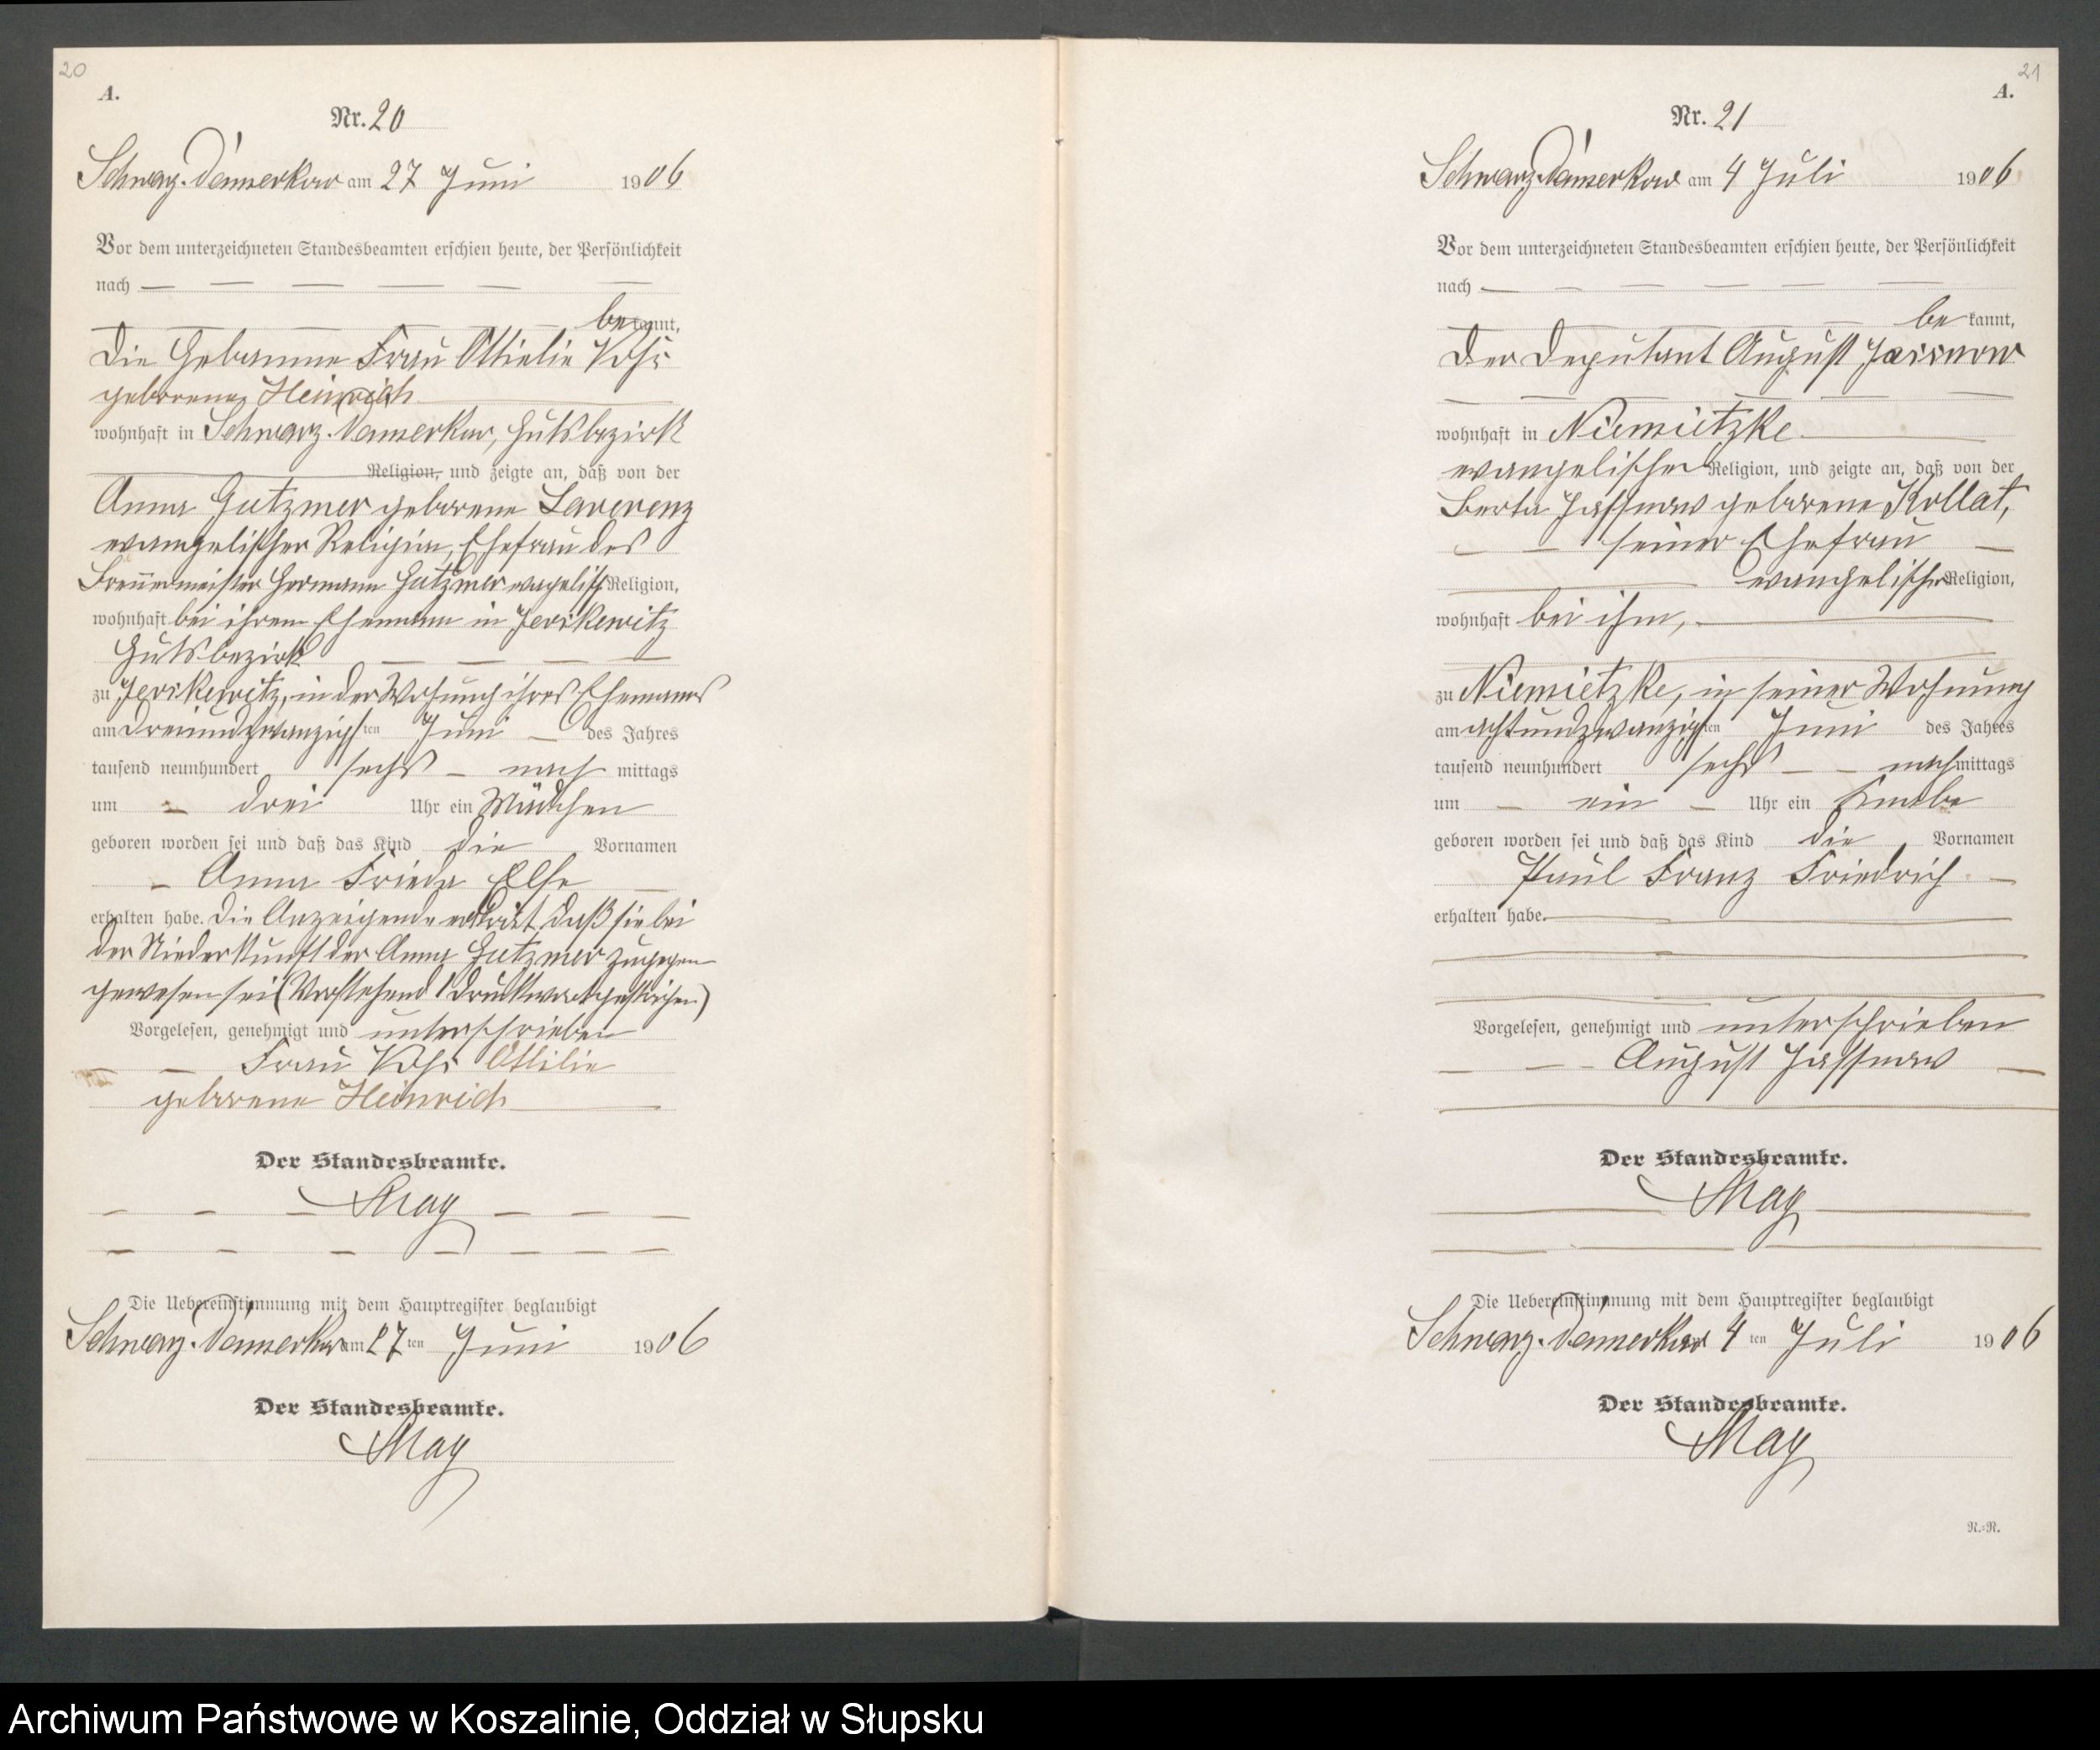 20
A.
Nr. 20
Schwarz-Damerkow am 27 Juni 1906
Vor dem unterzeichneten Standesbeamten erschien heute, der Persönlichkeit
nach
bekannt,
die Hebamme Frau Ottielie
geborene Heinrich
wohnhaft in Schwarz-Damerkow, Gutsbezirk
Religion, und zeigte an, daß von der
Anna Gutzmer geborene Lawrenz
evangelischer Religion, Ehefrau des
Brennermeister Hermann Gutzmer evagelisch Religion,
wohnhaft bei ihrem Ehemann in Jerskewitz
Gutsbezirk
zu Jerskewitz, in der Wohnung ihres Ehemannes
am dreiundzwanzigsten Juni des Jahres
tausend neunhundert sechs nachmittags
um drei Uhr ein Mädchen
geboren worden sei und daß das Kind die Vornamen
Anna Frieda Else
erhalten habe. Die Anzeigende erklärt, daß sie bei
der Niederkunft der Anna Gutzmer zugegen
gewesen sei (Vorstehend 1 Druckwort gestrichen)
Vorgelesen, genehmigt und unterschrieben
Frau Ottilie
geborene Heinrich
Der Standesbeamte.
May
Die Uebereinstimmung mit dem Hauptregister beglaubigt
Schwarz-Damerkow am 27ten Juni 1906
Der Standesbeamte.
May
21
A.
Nr. 21
Schwarz-Damerkow am 4 Juli 1906
Vor dem unterzeichneten Standesbeamten erschien heute, der Persönlichkeit
nach
bekannt,
der Deputant August Jassnow
wohnhaft in Niemietzke
evangelischer Religion, und zeigte an, daß von der
Berta Jassnow geborene Kollat,
seiner Ehefrau
evangelischer Religion,
wohnhaft bei ihm,
zu Niemietzke, in seiner Wohnung
am achtundzwanzigsten Juni des Jahres
tausend neunhundert sechs nachmittags
um ein Uhr ein Knabe
geboren worden sei und daß das Kind die Vornamen
Paul Franz Friedrich
erhalten habe.
Vorgelesen, genehmigt und unterschrieben
August Jassnow
Der Standesbeamte.
May
Die Uebereinstimmung mit dem Hauptregister beglaubigt
Schwarz-Damerkow am 4ten Juli 1906
Der Standesbeamte.
May
N.=N.
Archiwum Państwowe w Koszalinie, Oddział w Słupsku